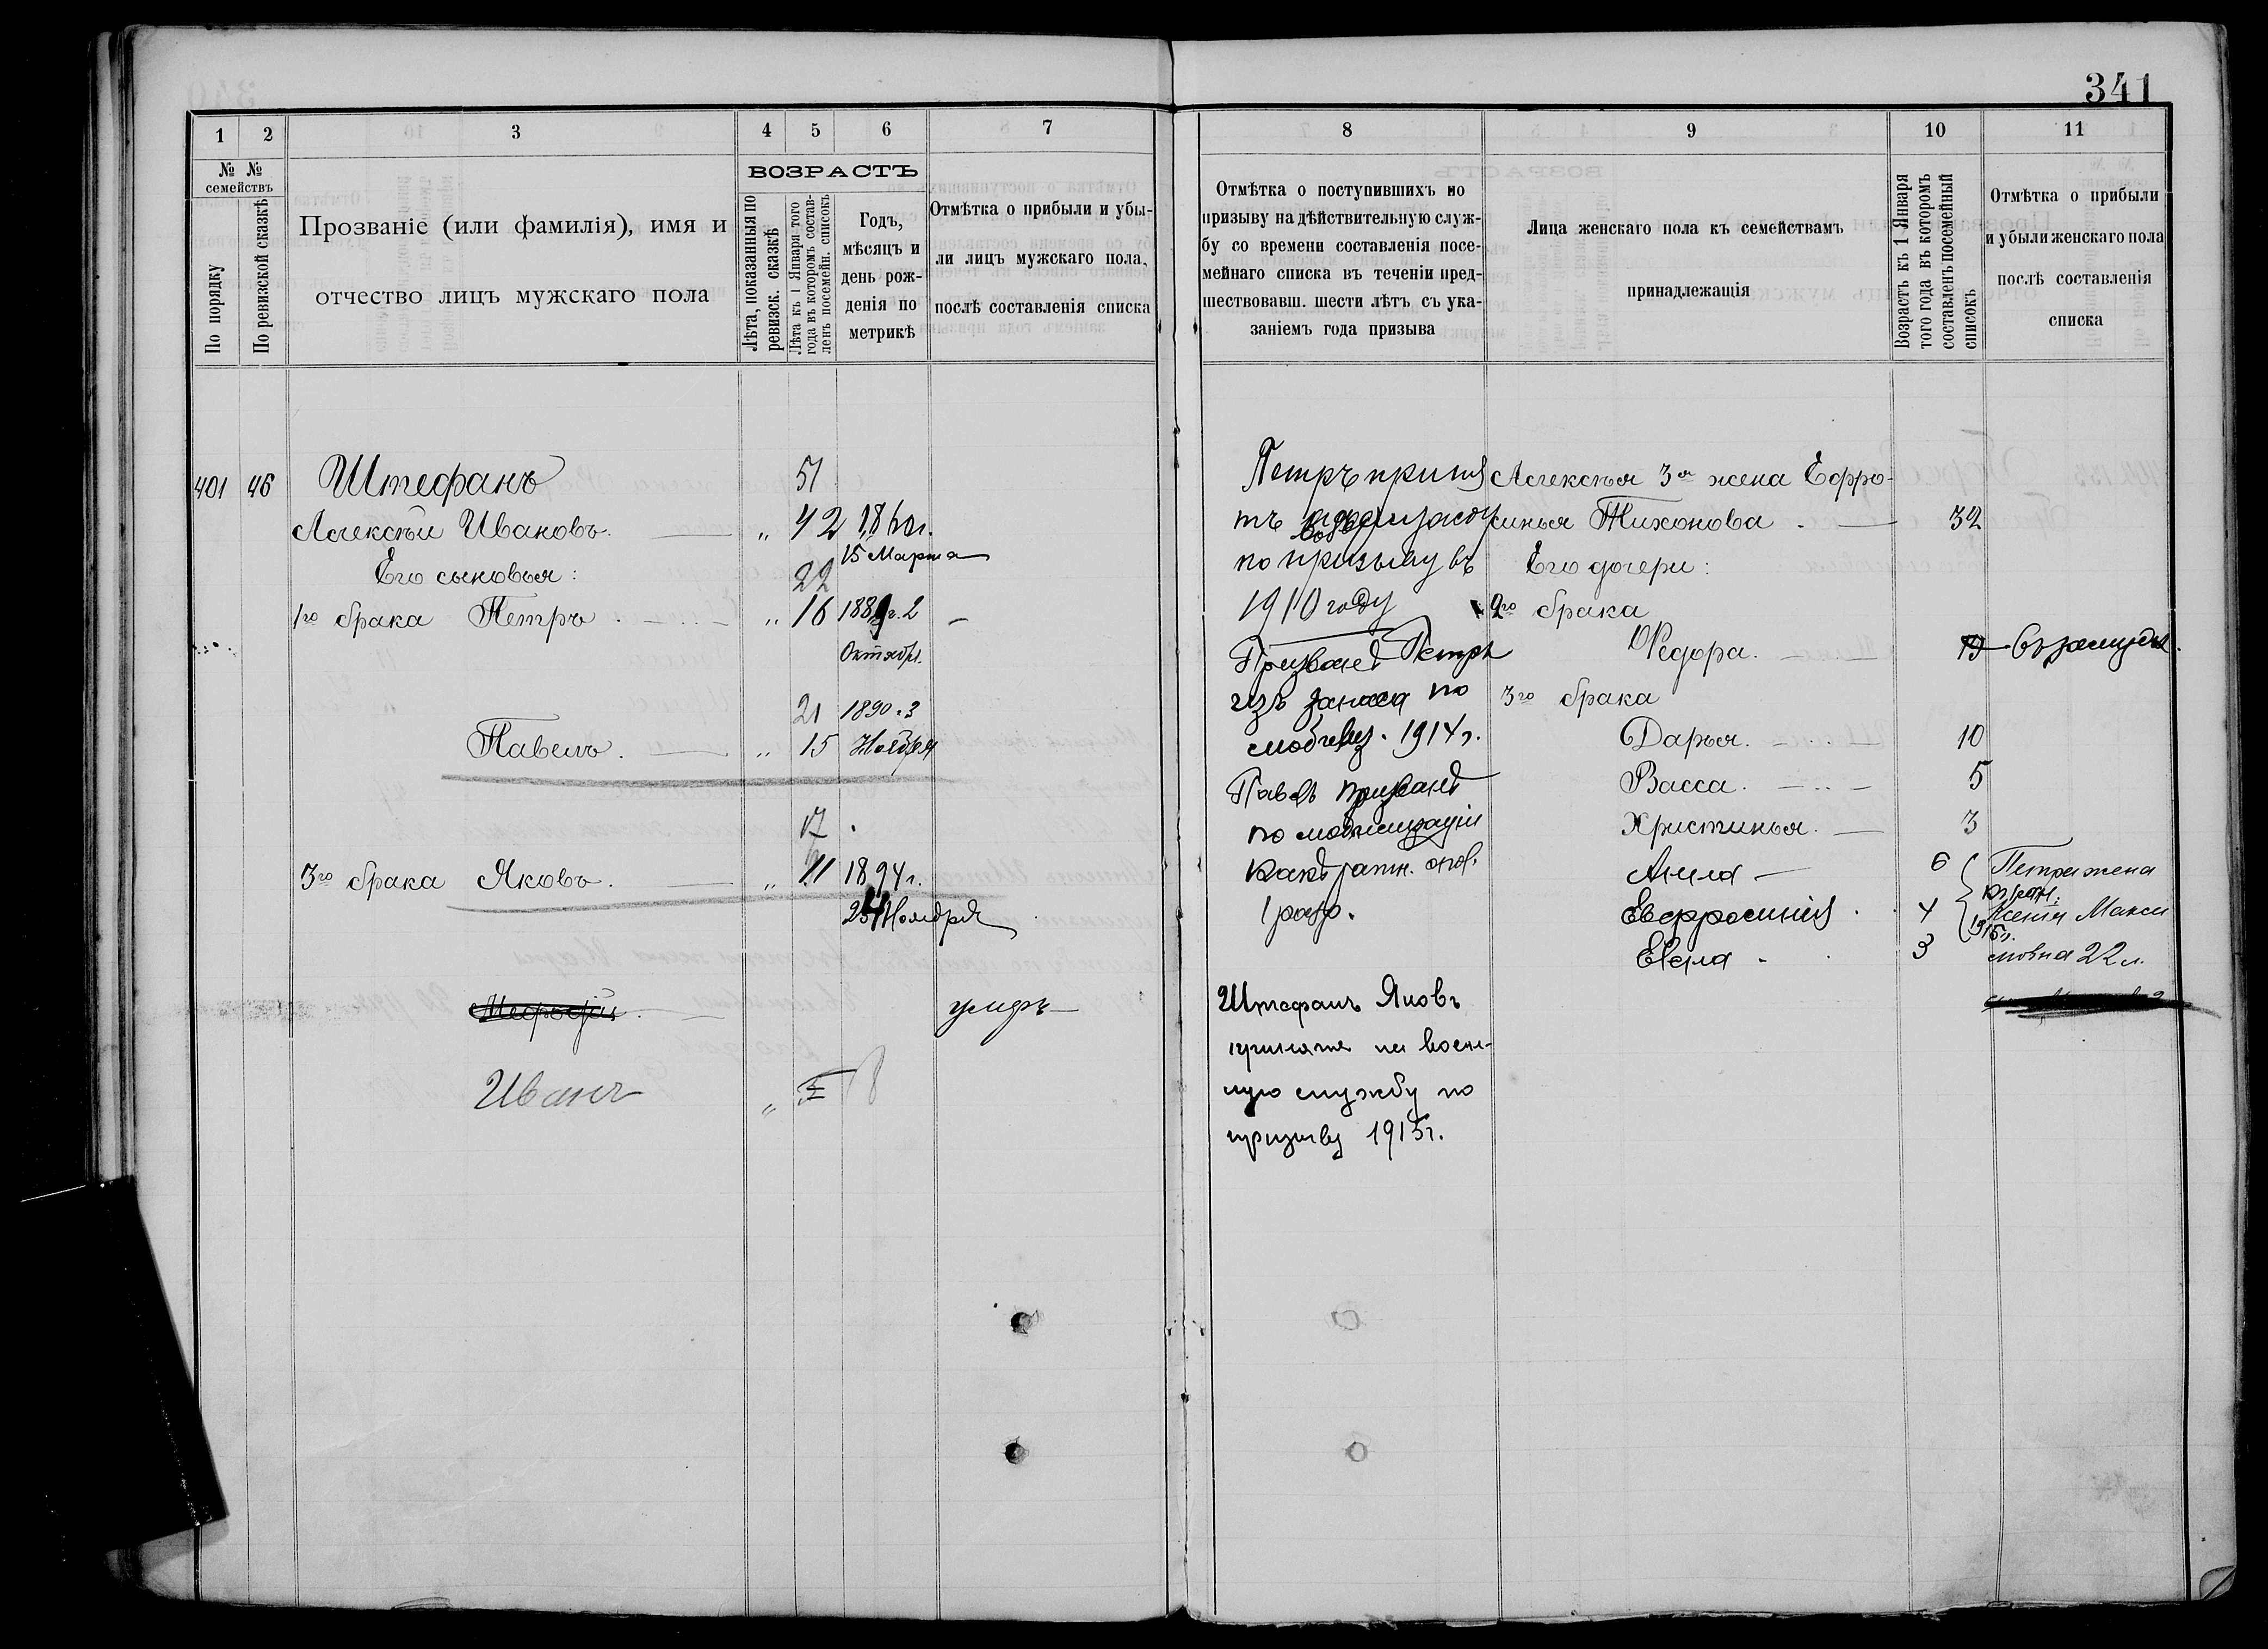 341
1 2 3 4 5 6 7
№ № семействъ
По порядку
По ревизской сказкѣ
Прозваніе (или фамилія), имя и
отчество лицъ мужскаго пола
ВОЗРАСТЪ
Лѣта, показанныя по
ревизск. сказкѣ
Лѣта къ 1 Января того
года въ которомъ состав-
ленъ посемейн. списокъ
Годъ,
мѣсяцъ и
день рож-
денія по
метрикѣ
Отмѣтка о прибыли и убы-
ли лицъ мужскаго пола,
послѣ составленія списка
401 46 Штефанъ 51
Алексѣй Ивановъ. „ 42 1860г.
15 Марта
Его сыновья: 22
1го брака Петръ „ 16 1889г. 2
Октябр.
21 1890.3
Павелъ „ 15 Ноября
17
3го брака Яковъ „ 11 1894г.
Ноября
умеръ
Иванъ „
8 9 10 11
Отмѣтка о поступившихъ по
призыву на дѣйствительную служ-
бу со времени составленія посе-
мейнаго списка въ теченіи пред-
шествовавш. шести лѣтъ съ ука-
заніемъ года призыва
Лица женскаго пола къ семействамъ
принадлежащія
Возрастъ къ 1 Января
того года въ которомъ
составленъ посемейный
списокъ
Отмѣтка о прибыли
и убыли женскаго пола
послѣ составленія
списка
Петръ приня
тъ
по призыву въ
1910 году
Призванъ Петръ
изъ запаса по
мобилиз. 1914г.
Павелъ призванъ
по мобилизаціи
какъ ратн. опол.
1 разр.
Штефанъ Яковъ
принятъ на воен-
ную службу по
призыву 1915г.
Алексѣя 3я жена Ефро-
синья Тихонова 32
Его дочери:
2го брака
Федора. 13 Въ замуж.
3го брака
Дарья. 10
Васса. 5
Христинья. 3
Анна 6
Евфросинія 4
Елена 3
Петра жена
Ксенія Макси
1915г.
мовна 22 л.